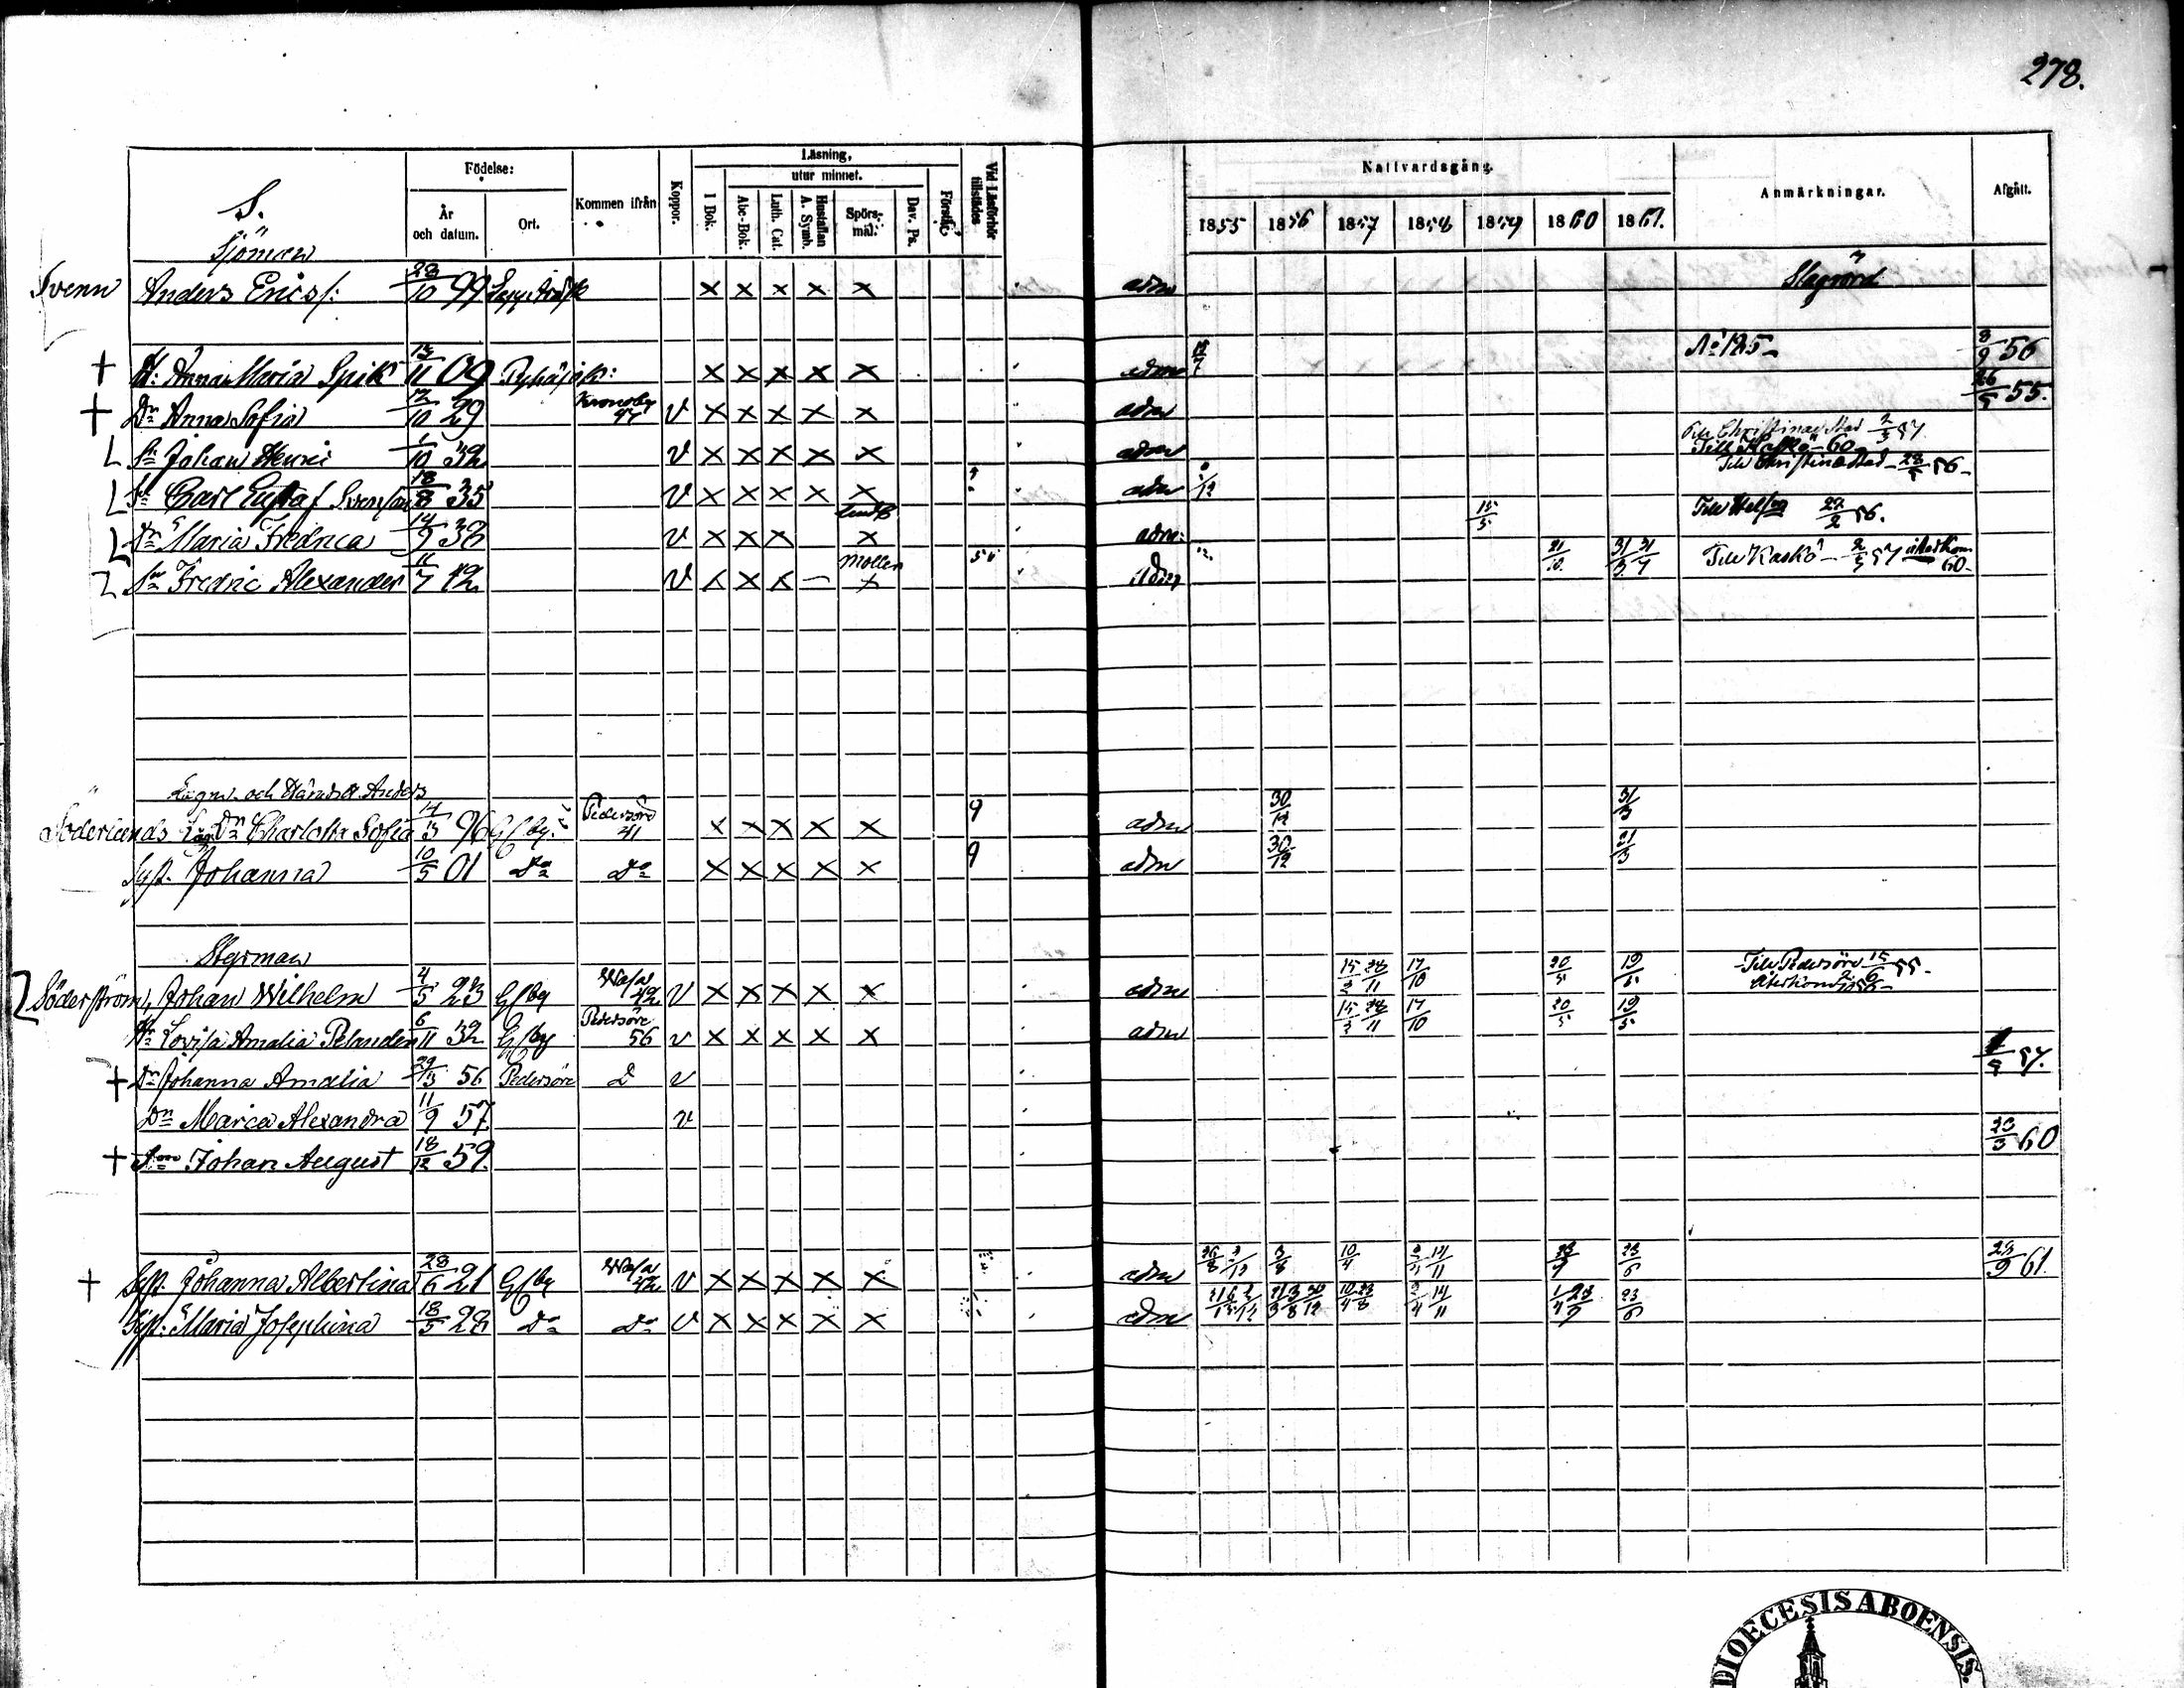 278.
S.
Födelse:
År och datum.
Ort.
Kommen ifrån
Koppor.
Läsning,
utur minnet.
I Bok.
Abc-Bok.
Luth. Cat.
Hustaflan A. Symb.
Spörs-mål.
Dav. Ps.
Förstår
Vid Läsförhör tillstädes
Nattvardsgång.
1855 1856 1857 1858 1859 1860 1861.
Anmärkningar.
Afgått.
Sjöman
Svenn Anders Ericss: 28/10 99 × × × × × adm Slagrörd
† H: Anna Maria Spik 13/11 09 × × × × × adm No 125 8/9 56
† Dr Anna Sofia 12/10 29 Kronoby 47 v × × × × × adm 26/5 55.
L Sn Johan Henric 1/10 32 v × × × × × adm Till Christinæstad 2/3 57
Till Kaskö - 60
L Sn Carl Gustaf Svensson 18/8 35 v × × × × × adm Till Christinæstad - 28/5 56 -
L Dr Maria Fredrica 14/9 38 v × × × × adm: 15/5 Till 22/2 56.
Sn Fredric Alexander 11/7 42 v × × × – Moller × adm 21/10 31/3 31/7 Till Kaskö - 2/5 57 återkom 60-
och Anders
Söderlunds Dn Charlotta Sofia 14/3 96 G/by. Pedersöre 41 × × × × × 9 adm 30/12 31/3
Syst. Johanna 10/5 01 Do Do × × × × × 9 adm 30/12 21/3
Styrman
Söderström, Johan Wilhelm 4/5 23 G/by Wasa 42 v × × × × × adm 15/3 28/11 17/10 20/5 19/5 Till Pedersöre 15/6 55 -
Återkom 1856 -
Hu Lovisa Amalia Pelander 6/11 32 G/by Pedersöre 56 v × × × × × adm 15/3 28/11 17/10 20/5 19/5
† Dr Johanna Amalia 29/3 56 Pedersöre D v 57.
Dr Maria Alexandra 11/9 57 v
† Son Johan August 18/12 59. 23/3 60
† Syst. Johanna Albertina 28/6 21 G/by Wasa 42 v × × × × × adm 3/8 10/4 14/11 23/6 28/9 61.
Syst: Maria Josephina 18/5 28 Do Do v × × × × × adm 10/4 23/8 14/11 23/6
DIOECESIS ABOENSIS.